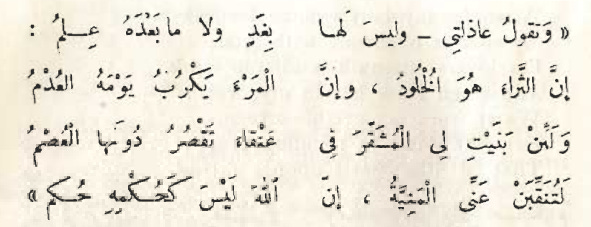 « وَتَقولُ عاذِلتِي – وليس لَها بِغَدٍ ولا ما بَعْدَهُ عِلمُ :
إنَّ الثَّراءَ هُوَ الْخُلودُ ، وإنَّ الْمَرْءَ يَكْرُبُ يَوْمَهُ العُدْمُ
وَلَئِنْ بَنَيْتِ لِي الْمُشَقَّرَ فِى عَنْقاءَ تَقْصُرُ دُونَها الْعُصْمُ
لَتُنَقِّبَنْ عَنِّى الْمَنِيَّةُ ، إنّ اللّٰهَ لَيْسَ كَحُكْمِهِ حُكم »